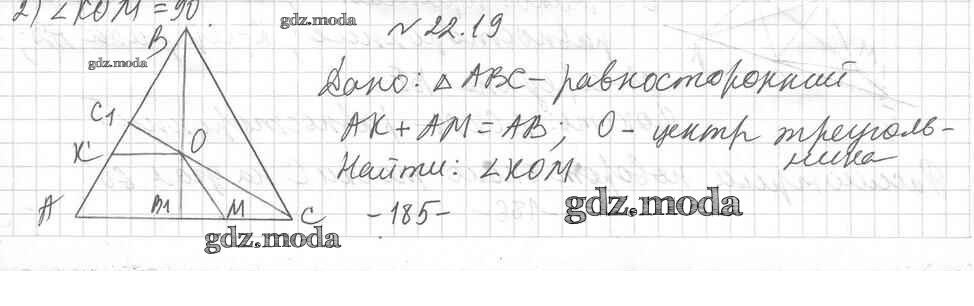 2) ∠KOM = 90.
gdz.moda
№ 22.19
B
gdz.moda
Дано: △ ABC - равносторонний
C1
AK + AM = AB; O - центр треуголь-
ника
O
K
Найти: ∠KOM
A
B1
M
C
- 185 -
gdz.moda
gdz.moda